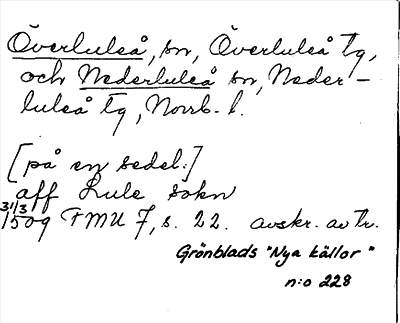 Överluleå, sn, Överluleå tg,
och Nederluleå sn, Neder-
luleå tg, Norrb. l.
[på en sedel:]
aff Lule sokn
31/3 1509 FMU 7, s. 22. avskr. av tr.
Grönblads "Nya källor"
n:o 228